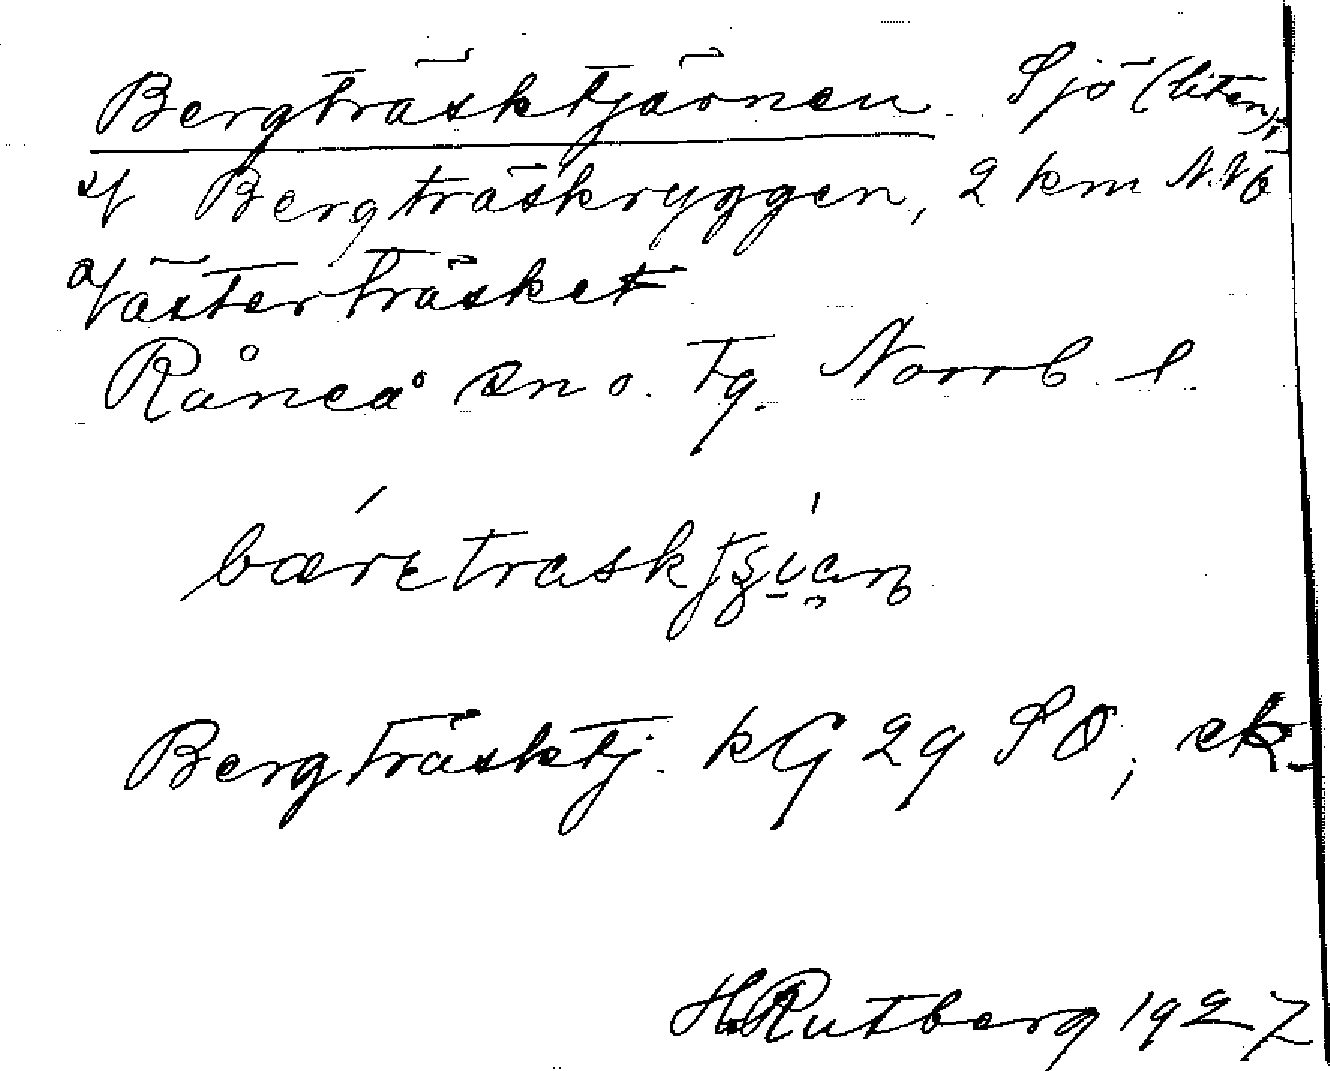 Bergträsktjärnen Sjö (liten),
V Bergträskryggen, 2 km N.NÖ
Västerträsket
Råneå sn o. tg. Norrb. l.
Bergträsktj. kG 29 SO, ek.
H. Rutberg 1927